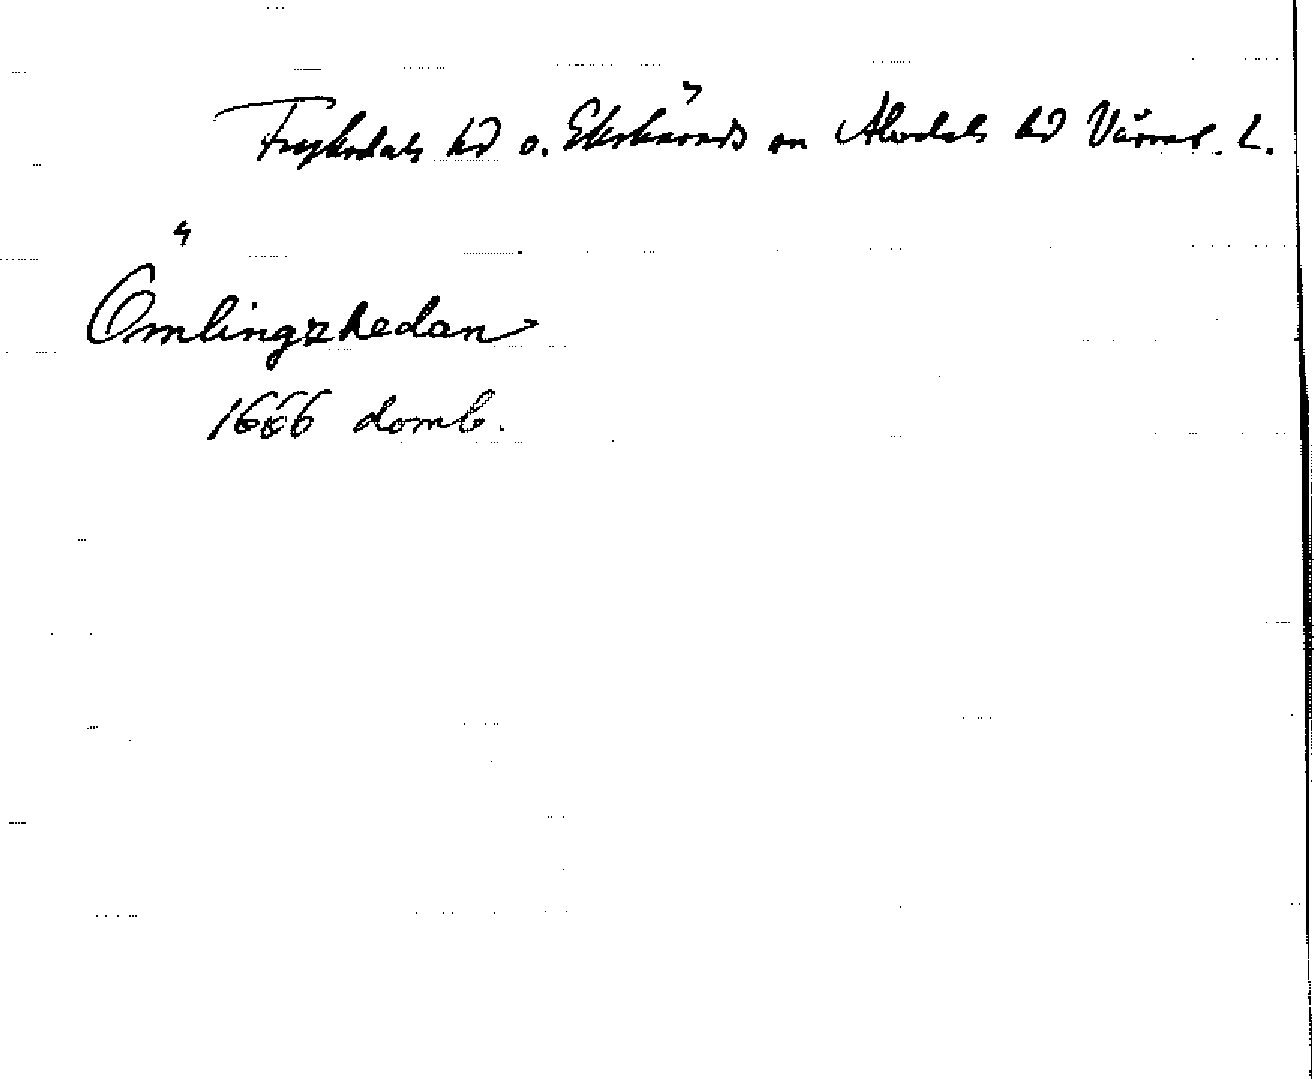 Fryksdals hd o. Ekshärads sn Älvdals hd Värml. L.
Ömlingzhedan
1666 domb.